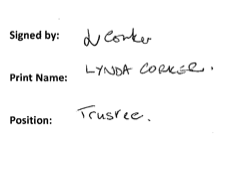 Signed by: L Corker
Print Name: LYNDA CORKER.
Position: Trustee.